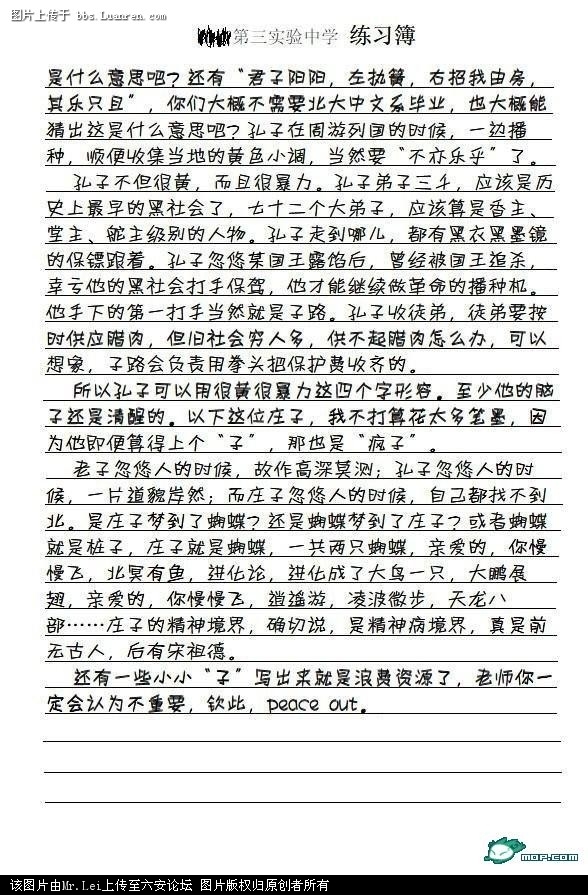 图片上传于 bbs.Luanren.com
第三实验中学 练习簿
是什么意思吧？还有“君子阳阳，左执簧，右招我由房，
其乐只且”，你们大概不需要北大中文系毕业，也大概能
猜出这是什么意思吧？孔子在周游列国的时候，一边播
种，顺便收集当地的黄色小调，当然要“不亦乐乎”了。
孔子不但很黄，而且很暴力。孔子弟子三斗，应该是历
史上最早的黑社会了，七十二个大弟子，应该算是香主、
堂主、舵主级别的人物。孔子走到哪儿，都有黑衣黑墨镜
的保镖跟着。孔子忽悠某国王露馅后，曾经被国王追杀，
幸亏他的黑社会打手保驾，他才能继续做革命的播种机。
他手下的第一打手当然就是子路。孔子收徒弟，徒弟要按
时供应腊肉，但旧社会穷人多，供不起腊肉怎么办，可以
想象，子路会负责用拳头把保护费收齐的。
所以孔子可以用很黄很暴力这四个字形容。至少他的脑
子还是清醒的。以下这位庄子，我不打算花太多笔墨，因
为他即便算得上个“子”，那也是“疯子”。
老子忽悠人的时候，故作高深莫测；孔子忽悠人的时
候，一片道貌岸然；而庄子忽悠人的时候，自己都找不到
北。是庄子梦到了蝴蝶？还是蝴蝶梦到了庄子？或者蝴蝶
就是桩子，庄子就是蝴蝶，一共两只蝴蝶，亲爱的，你慢
慢飞，北冥有鱼，进化论，进化成了大鸟一只，大鹏展
翅，亲爱的，你慢慢飞，逍遥游，凌波微步，天龙八
部……庄子的精神境界，确切说，是精神病境界，真是前
无古人，后有宋祖德。
还有一些小小“子”写出来就是浪费资源了，老师你一
定会认为不重要，钦此，peace out。
MOP.com
该图片由Mr.Lei上传至六安论坛 图片版权归原创者所有